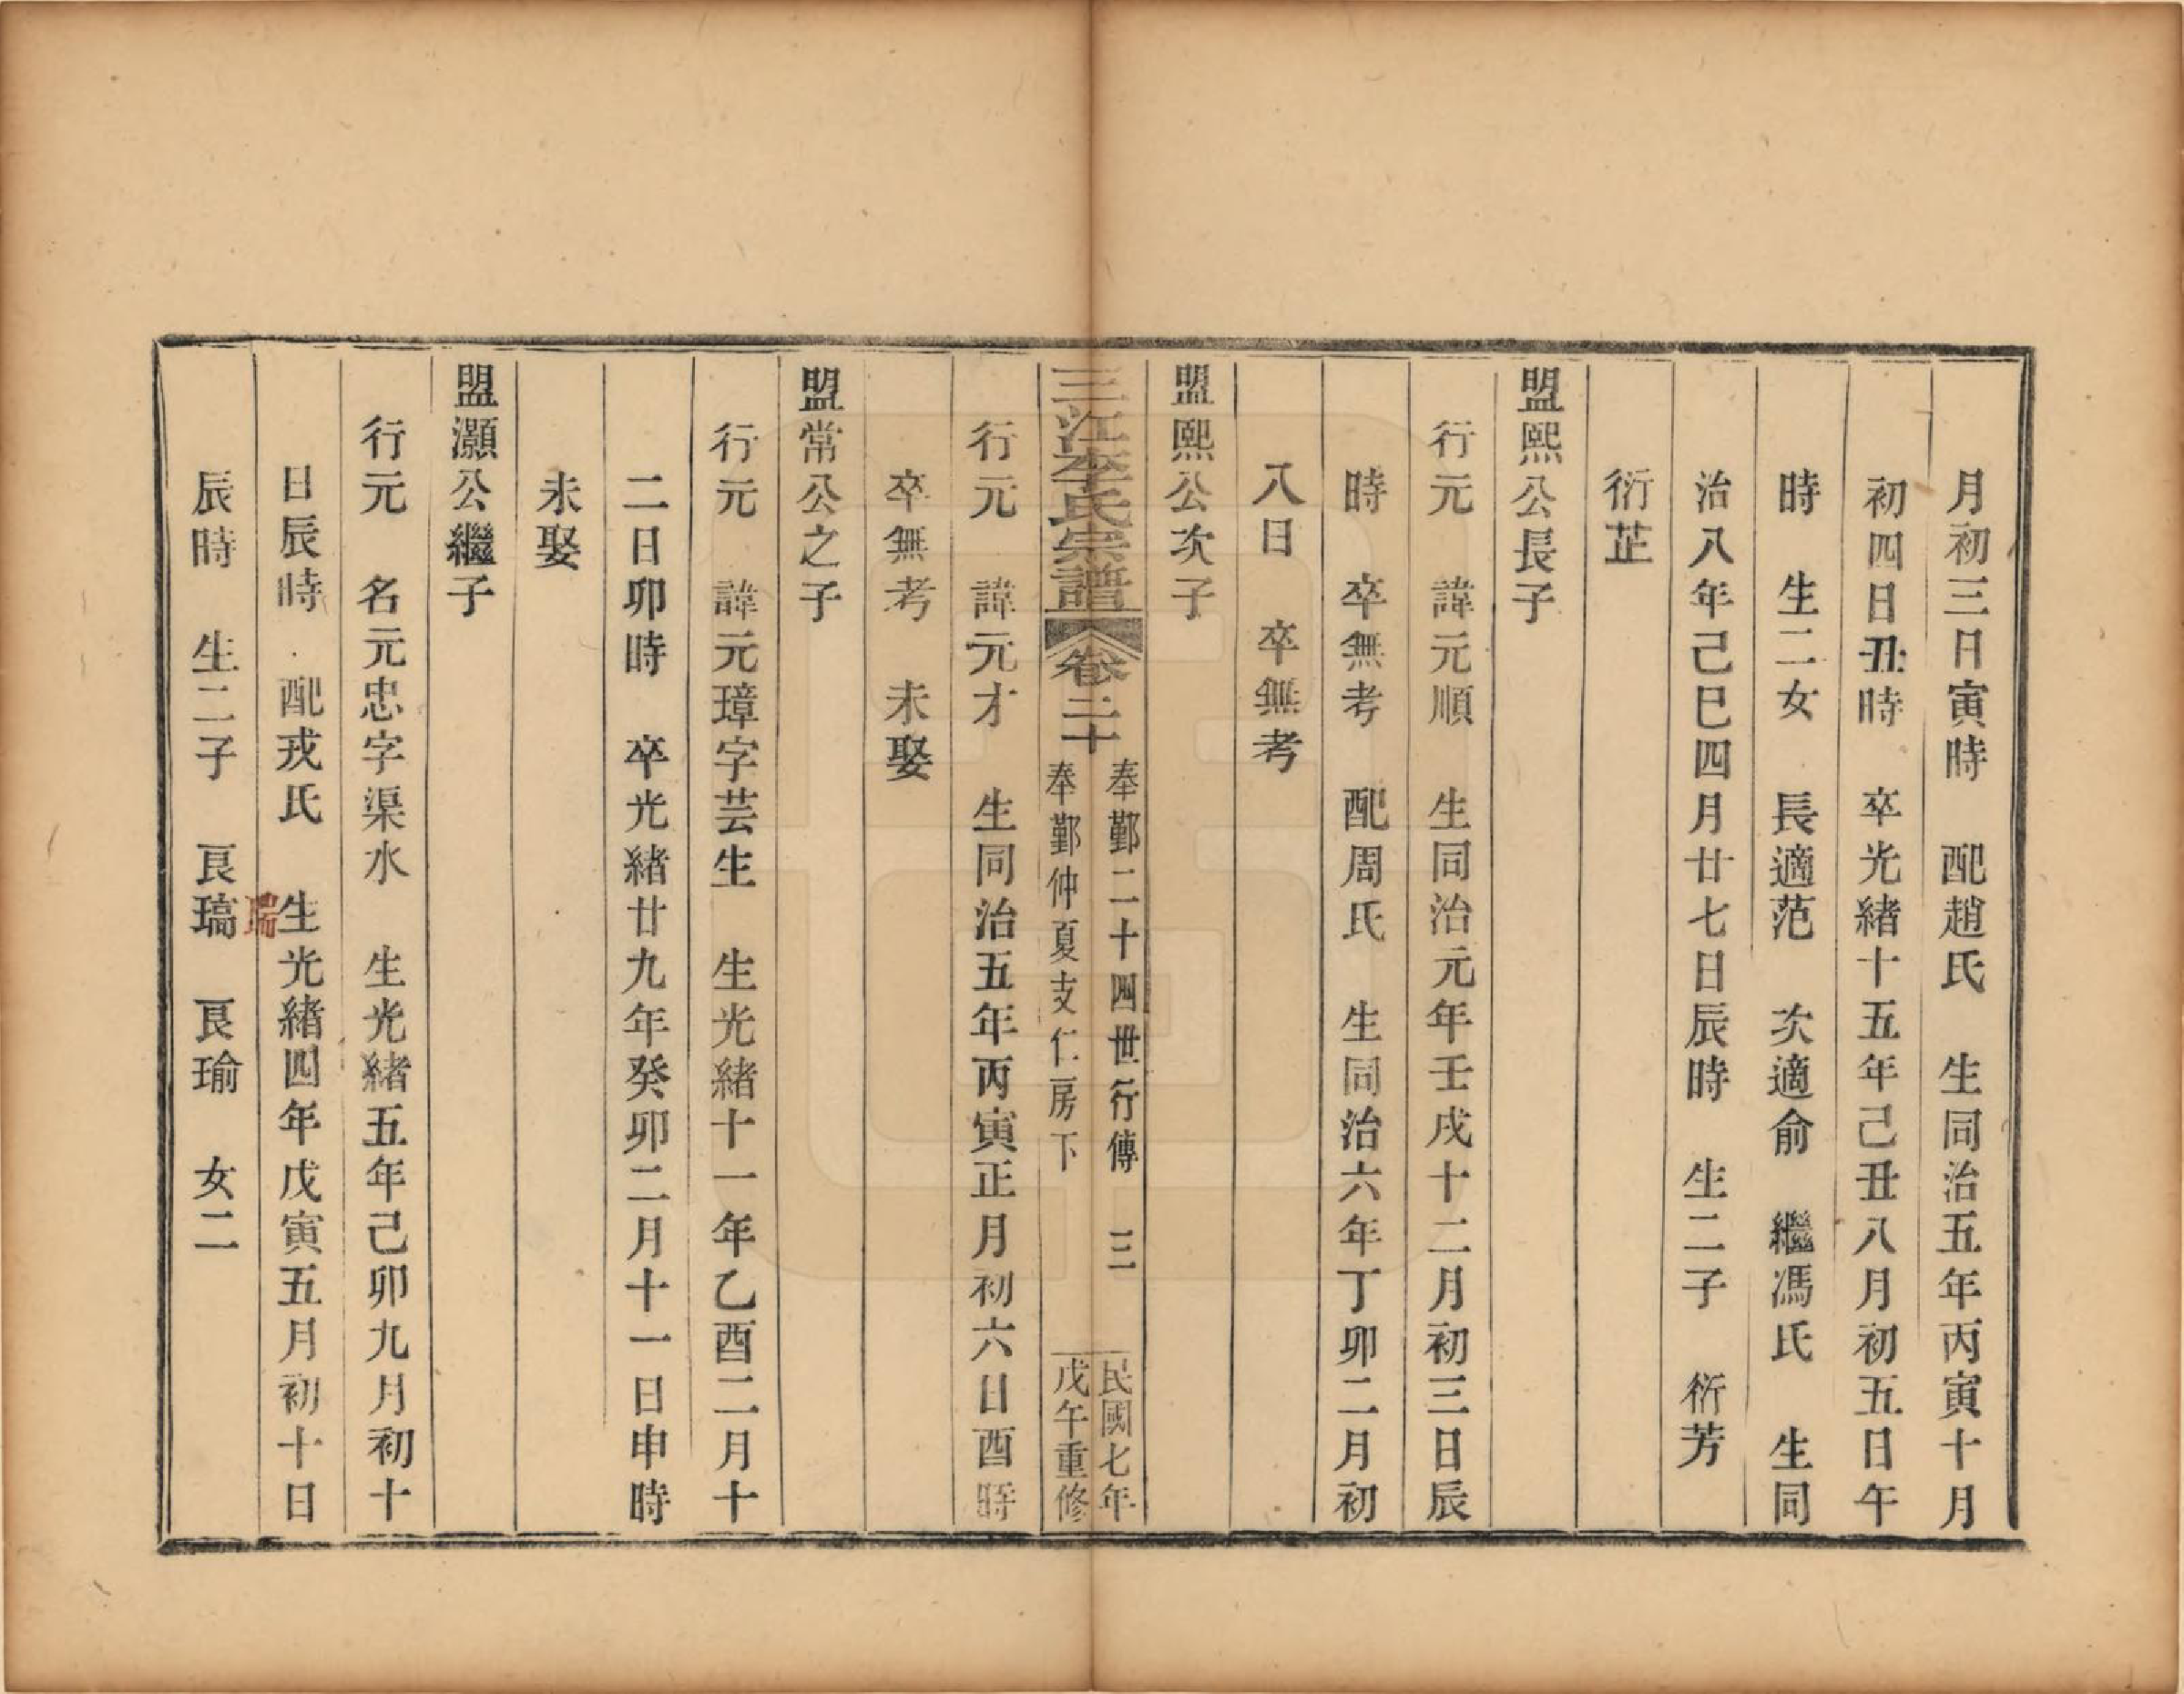 月初三日寅時　配趙氏　生同治五年丙寅十月
初四日丑時　卒光緒十五年己丑八月初五日午
時　生二女　長適范　次適俞　繼馮氏　生同
治八年己巳四月廿七日辰時　生二子　衍芳
衍芷
盟熙公長子
行元　諱元順　生同治元年壬戌十二月初三日辰
時　卒無考　配周氏　生同治六年丁卯二月初
八日　卒無考
盟熙公次子
三江李氏宗譜　卷二十
奉鄞二十四世行傳　三
奉鄞仲夏支仁房下
民國七年
戊午重修
行元　諱元才　生同治五年丙寅正月初六日酉時
卒無考　未娶
盟常公之子
行元　諱元璋字芸生　生光緒十一年乙酉二月十
二日卯時　卒光緒廿九年癸卯二月十一日申時
未娶
盟灝公繼子
行元　名元忠字渠水　生光緒五年己卯九月初十
日辰時　配戎氏　生光緒四年戊寅五月初十日
瑞
辰時　生二子　良瑞　良瑜　女二